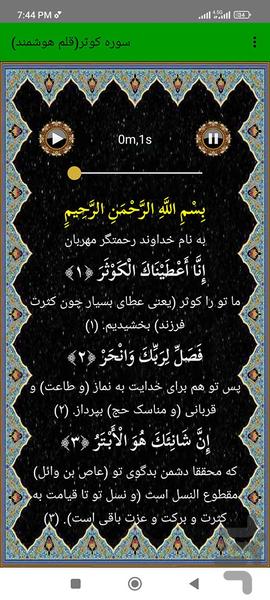 7:44 PM
4.5G
54
سوره کوثر(قلم هوشمند)
0m,1s
بِسْمِ اللَّهِ الرَّحْمَنِ الرَّحِيمِ
به نام خداوند رحمتگر مهربان
إِنَّا أَعْطَيْنَاكَ الْكَوْثَرَ ﴿۱﴾
ما تو را کوثر (یعنی عطای بسیار چون کثرت
فرزند) بخشیدیم. (۱)
فَصَلِّ لِرَبِّكَ وَانْحَرْ ﴿۲﴾
پس تو هم برای خدایت به نماز (و طاعت) و
قربانی (و مناسک حج) بپرداز. (۲)
إِنَّ شَانِئَكَ هُوَ الْأَبْتَرُ ﴿۳﴾
که محققا دشمن بدگوی تو (عاص بن وائل)
مقطوع النسل است (و نسل تو تا قیامت به
کثرت و برکت و عزت باقی است). (۳)